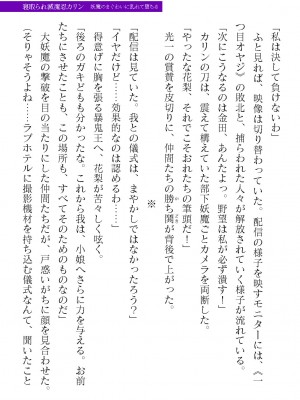 寝取られ滅魔忍カリン 妖魔のまぐわいに乱れて堕ちる
「私は決して負けないわ」
ふと見れば、映像は切り替わっていた。配信の様子を映すモニターには、《一
つ目オヤジ》の敗北と、捕らわれた人々が解放されていく様子が流れている。
「次にこうなるのは金田、あんたよっ。野望は私が必ず潰す！」
カリンの刀は、震えて構えていた部下妖魔ごとカメラを両断した。
「やったな花梨、それでこそおれたちの筆頭だ！」
光一の賞賛を皮切りに、仲間たちの勝ち鬨が背後で上がった。
※
「配信は見ていた。我との儀式は、まやかしではなかったろう？」
「イヤだけど……効果的なのは認めるわ……」
得意げに胸を張る暴鬼王へ、花梨が苦々しく呟く。
「後ろのガキどもも分かったな。これから我は、小娘へさらに力を与える。お前
たちにさせたことも、この場所も、すべてそのためのものなのだ」
大妖魔の撃破を目の当たりにした仲間たちだが、戸惑いがちに顔を見合わせた。
「そりゃそうよね……ラブホテルに撮影機材を持ち込む儀式なんて、聞いたこと